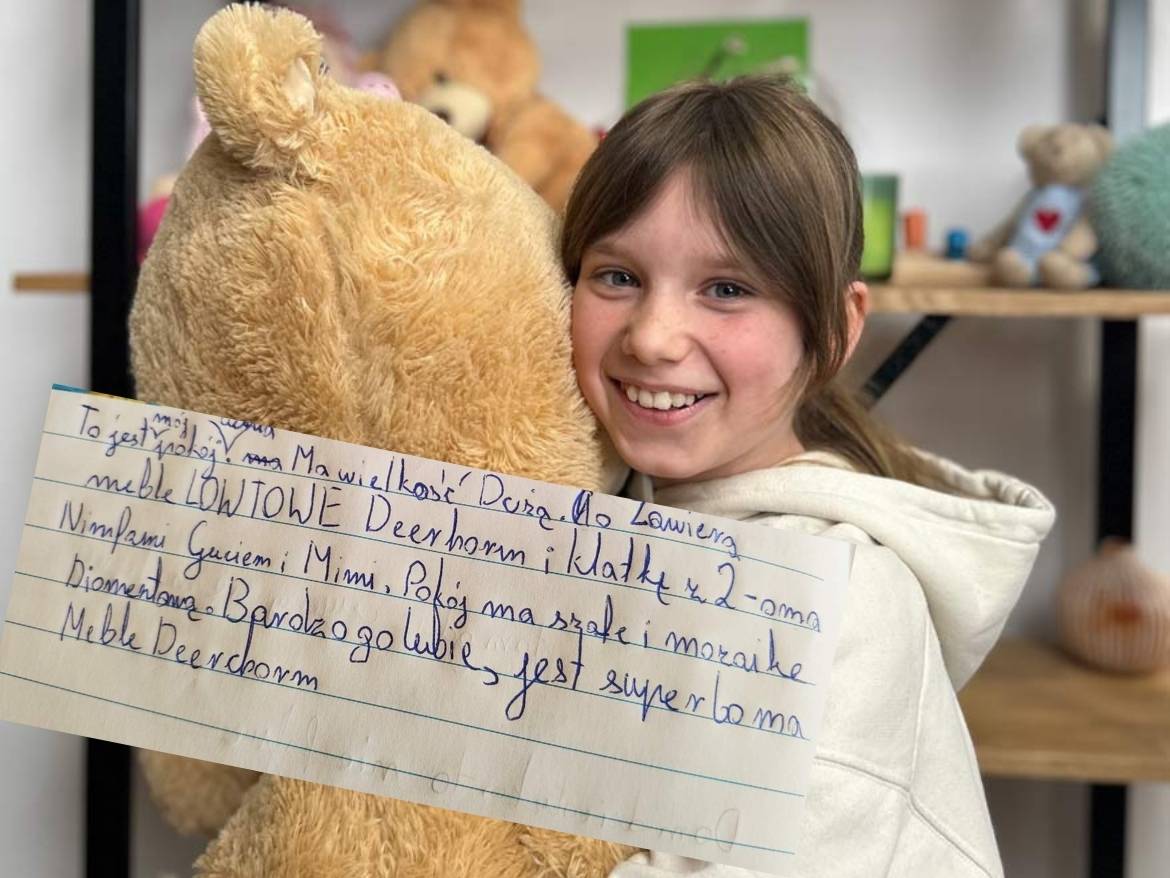 To jest mój pokój. Ma wielkość Dużą. Zawierą
meble LOWTOWE Deerhorm i klatkę z 2-oma
Nimfami Guciem i Mimi. Pokój ma szafe i mozaike
Diomentową. Bardzo go lubie, jest super bo ma
Meble Deerchorm